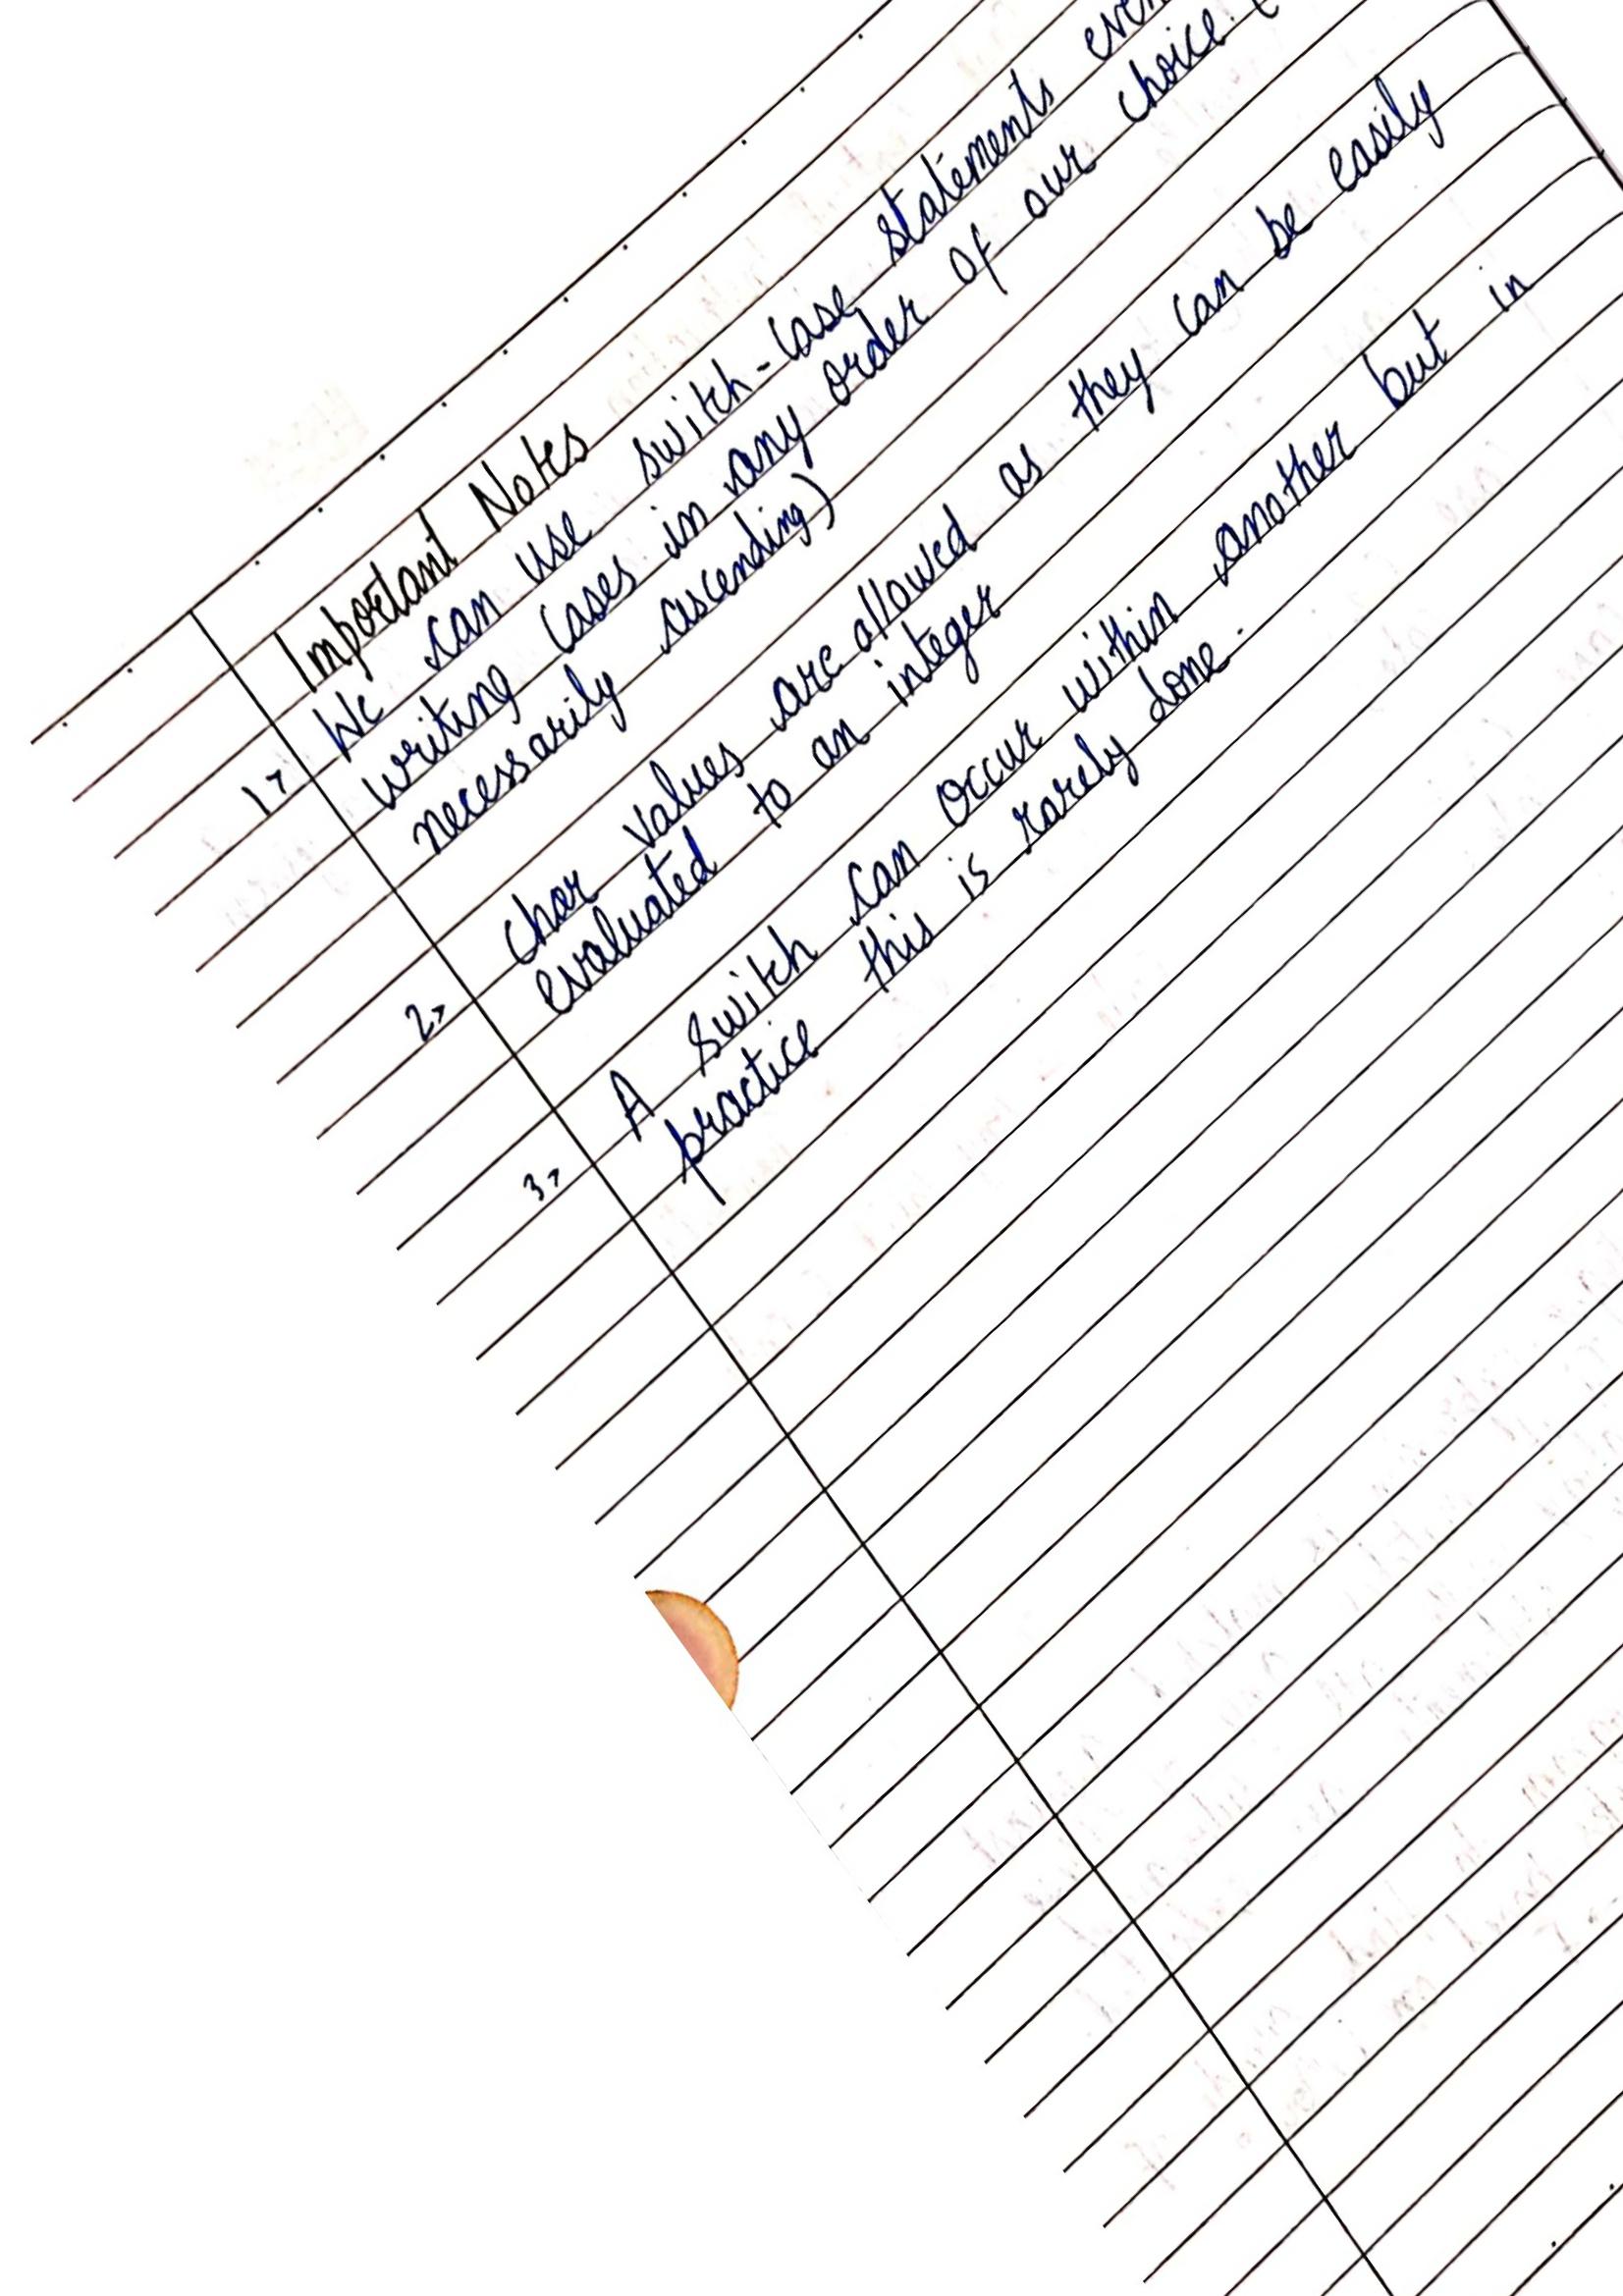 Important Notes
1> We can use switch-case statements even
writing cases in any order of our choice. (
necessarily ascending)
2> char values are allowed as they can be easily
evaluated to an integer
3> A switch can occur within another but in
practice this is rarely done.